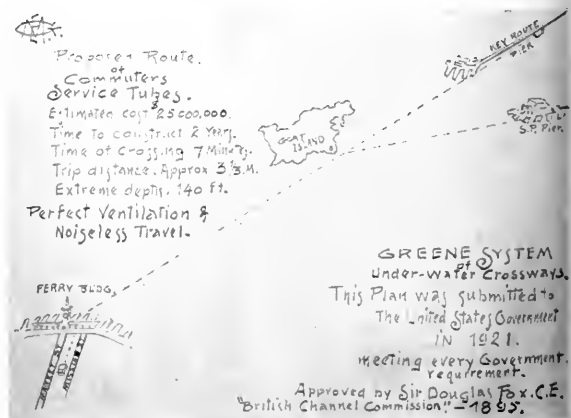 Proposed Route.
of
Commuters
Service Tubes.
Estimated cost $25000,000.
Time to construct 2 Years.
Time of Crossing 7 Minutes.
Trip distance. Approx 3⅓ M.
Extreme depth. 140 ft.
Perfect Ventilation &
Noiseless Travel.
KEY ROUTE
PIER
GOAT
ISLAND
S.P. Pier.
FERRY BLDG.
MARKET ST
MISSION
GREENE SYSTEM
of
Under-Water Crossways.
This Plan was submitted to
The United States Government
IN 1921.
meeting every Government
requirement.
Approved by Sir Douglas Fox. C.E.
"British Channel Commission" - 1895.